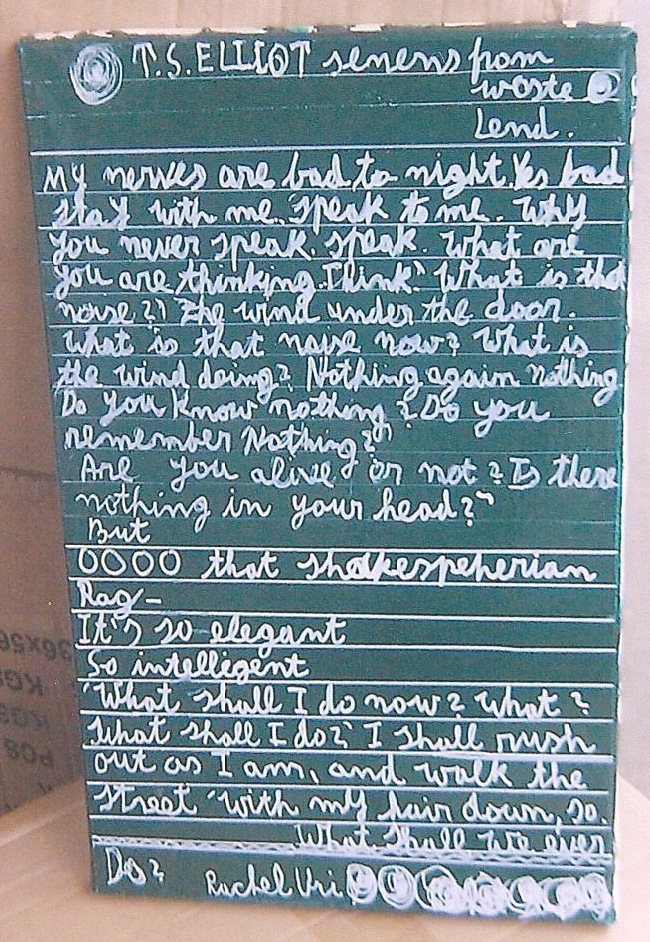 T.S.ELLIOT senens from
waste
Lend.
My nerves are bad to night. Yes bad
stay with me. speak to me. Why
you never speak. speak. What are
you are thinking. Think. What is that
noise?" The wind under the door.
What is that noise now? What is
the wind doing? Nothing again nothing
Do you know nothing? Do you
remember Nothing?"
Are you alive or not? Is there
nothing in your head?"
But
OOOO that shakespeherian
Rag-
It's so elegant
So intelligent
"What shall I do now? What?
What shall I do?" I shall rush
out as I am, and walk the
street "with my hair down, so.
What shall we ever
Do?
Rachel Uri
36x56
KGS
KGS
PCS